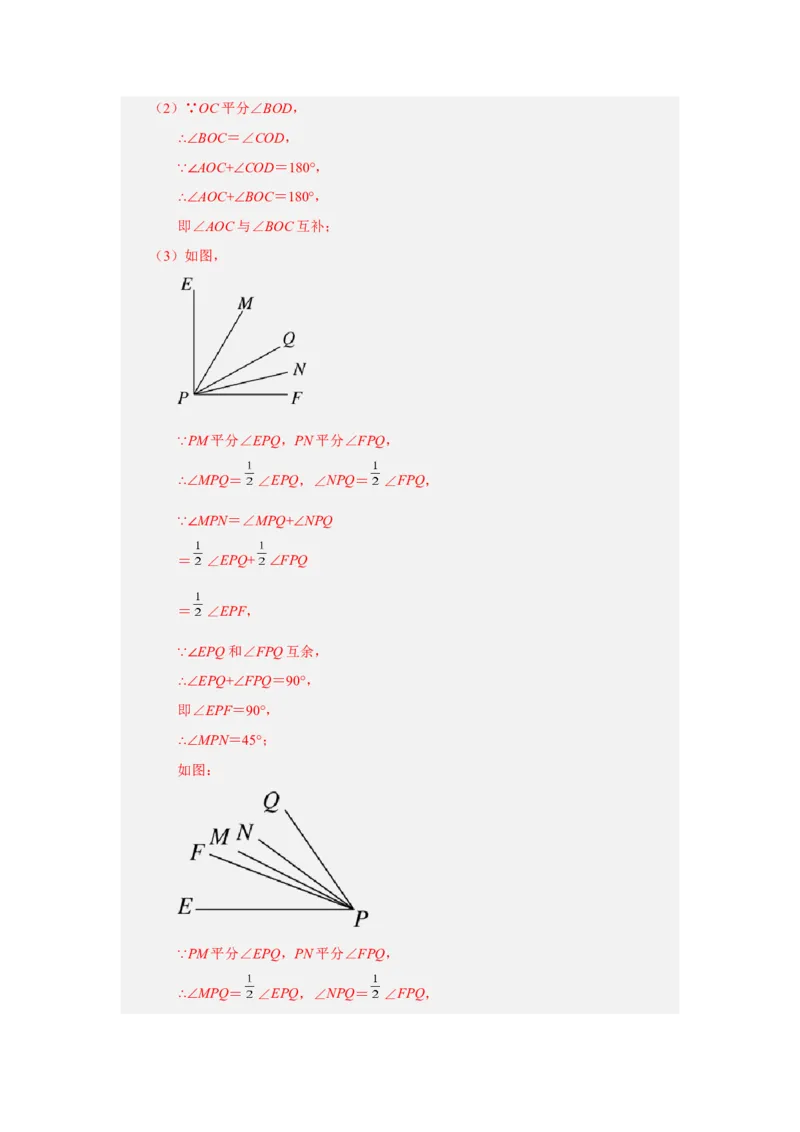 （2）∵OC平分∠BOD，
∴∠BOC＝∠COD，
∵∠AOC+∠COD＝180°，
∴∠AOC+∠BOC＝180°，
即∠AOC与∠BOC互补；
（3）如图，
E
M
Q
N
P
F
∵PM平分∠EPQ，PN平分∠FPQ，
∴∠MPQ＝1/2∠EPQ，∠NPQ＝1/2∠FPQ，
∵∠MPN＝∠MPQ+∠NPQ
＝1/2∠EPQ+1/2∠FPQ
＝1/2∠EPF，
∵∠EPQ和∠FPQ互余，
∴∠EPQ+∠FPQ＝90°，
即∠EPF＝90°，
∴∠MPN＝45°；
如图：
Q
M N
F
E
P
∵PM平分∠EPQ，PN平分∠FPQ，
∴∠MPQ＝1/2∠EPQ，∠NPQ＝1/2∠FPQ，